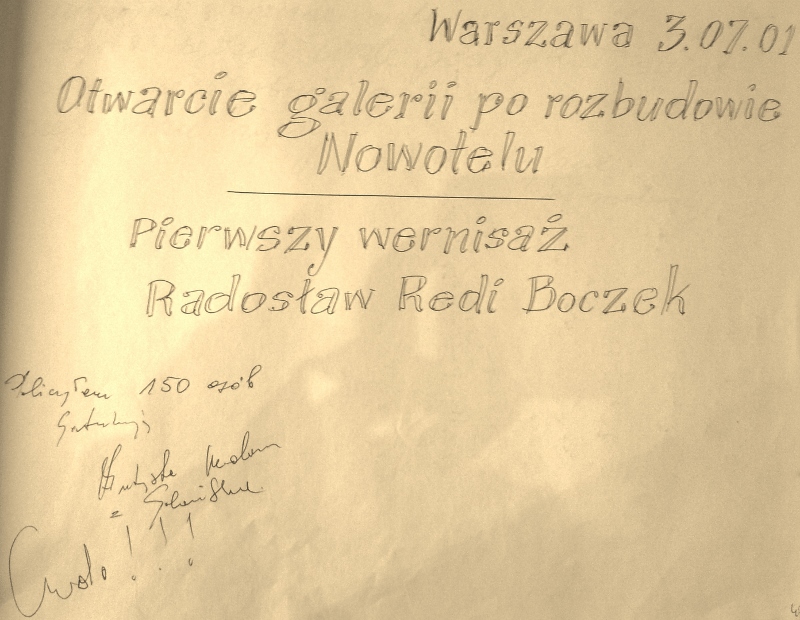 Warszawa 3.07.01
Otwarcie galerii po rozbudowie
Nowotelu
Pierwszy wernisaż
Radosław Redi Boczek
Policzyłem 150 osób
Gratuluję
z
!!!